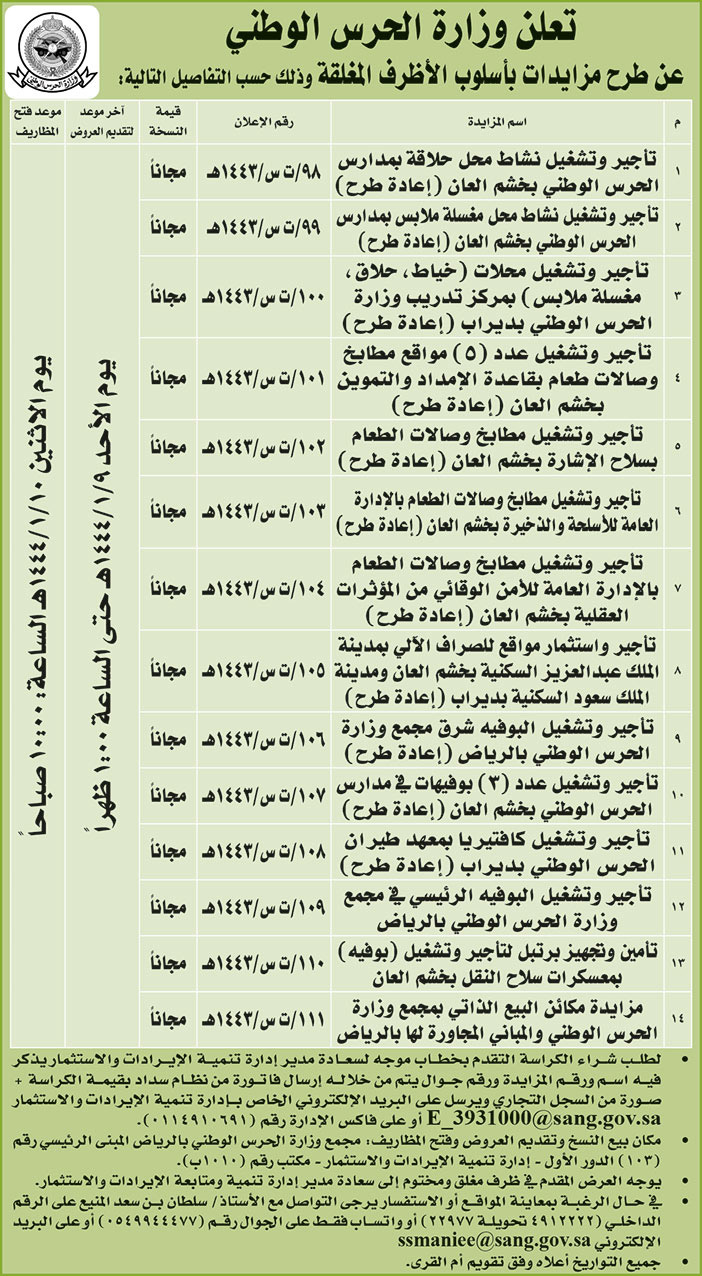 تعلن وزارة الحرس الوطني
عن طرح مزايدات بأسلوب الأظرف المغلقة وذلك حسب التفاصيل التالية:
وزارة الحرس الوطني
م	اسم المزايدة	رقم الإعلان	قيمة النسخة	آخر موعد لتقديم العروض	موعد فتح المظاريف
١	تأجير وتشغيل نشاط محل حلاقة بمدارس	٩٨/ت س/١٤٤٣هـ	مجاناً
الحرس الوطني بخشم العان (إعادة طرح)
٢	تأجير وتشغيل نشاط محل مغسلة ملابس بمدارس	٩٩/ت س/١٤٤٣هـ	مجاناً
الحرس الوطني بخشم العان (إعادة طرح)
٣	تأجير وتشغيل محلات (خياط، حلاق،	١٠٠/ت س/١٤٤٣هـ	مجاناً
مغسلة ملابس) بمركز تدريب وزارة
الحرس الوطني بديراب (إعادة طرح)
٤	تأجير وتشغيل عدد (٥) مواقع مطابخ	١٠١/ت س/١٤٤٣هـ	مجاناً
وصالات طعام بقاعدة الإمداد والتموين
بخشم العان (إعادة طرح)
٥	تأجير وتشغيل مطابخ وصالات الطعام	١٠٢/ت س/١٤٤٣هـ	مجاناً
بسلاح الإشارة بخشم العان (إعادة طرح)
٦	تأجير وتشغيل مطابخ وصالات الطعام بالإدارة	١٠٣/ت س/١٤٤٣هـ	مجاناً
العامة للأسلحة والذخيرة بخشم العان (إعادة طرح)
٧	تأجير وتشغيل مطابخ وصالات الطعام	١٠٤/ت س/١٤٤٣هـ	مجاناً
بالإدارة العامة للأمن الوقائي من المؤثرات
العقلية بخشم العان (إعادة طرح)
٨	تأجير واستثمار مواقع للصراف الآلي بمدينة	١٠٥/ت س/١٤٤٣هـ	مجاناً
الملك عبدالعزيز السكنية بخشم العان ومدينة
الملك سعود السكنية بديراب (إعادة طرح)
٩	تأجير وتشغيل البوفيه شرق مجمع وزارة	١٠٦/ت س/١٤٤٣هـ	مجاناً
الحرس الوطني بالرياض (إعادة طرح)
١٠	تأجير وتشغيل عدد (٣) بوفيهات في مدارس	١٠٧/ت س/١٤٤٣هـ	مجاناً
الحرس الوطني بخشم العان (إعادة طرح)
١١	تأجير وتشغيل كافتيريا بمعهد طيران	١٠٨/ت س/١٤٤٣هـ	مجاناً
الحرس الوطني بديراب (إعادة طرح)
١٢	تأجير وتشغيل البوفيه الرئيسي في مجمع	١٠٩/ت س/١٤٤٣هـ	مجاناً
وزارة الحرس الوطني بالرياض
١٣	تأمين وتجهيز برتبل لتأجير وتشغيل (بوفيه)	١١٠/ت س/١٤٤٣هـ	مجاناً
بمعسكرات سلاح النقل بخشم العان
١٤	مزايدة مكائن البيع الذاتي بمجمع وزارة	١١١/ت س/١٤٤٣هـ	مجاناً
الحرس الوطني والمباني المجاورة لها بالرياض
يوم الأحد ١٤٤٤/١/٩هـ حتى الساعة ١:٠٠ ظهراً
يوم الاثنين ١٤٤٤/١/١٠هـ الساعة: ١٠:٠٠ صباحاً
• لطلب شراء الكراسة التقدم بخطاب موجه لسعادة مدير إدارة تنمية الإيرادات والاستثمار يذكر
فيه اسم ورقم المزايدة ورقم جوال يتم من خلاله إرسال فاتورة من نظام سداد بقيمة الكراسة +
صورة من السجل التجاري ويرسل على البريد الإلكتروني الخاص بإدارة تنمية الإيرادات والاستثمار
E_3931000@sang.gov.sa أو على فاكس الإدارة رقم (٠١١٤٩١٠٦٩١).
• مكان بيع النسخ وتقديم العروض وفتح المظاريف: مجمع وزارة الحرس الوطني بالرياض المبنى الرئيسي رقم
(١٠٣) الدور الأول - إدارة تنمية الإيرادات والاستثمار - مكتب رقم (١٠١٠ب).
• يوجه العرض المقدم في ظرف مغلق ومختوم إلى سعادة مدير إدارة تنمية ومتابعة الإيرادات والاستثمار.
• في حال الرغبة بمعاينة المواقع أو الاستفسار يرجى التواصل مع الأستاذ/ سلطان بن سعد المنيع على الرقم
الداخلي (٤٩١٢٢٢٢ تحويلة ٢٢٩٧٧) أو واتساب فقط على الجوال رقم (٠٥٤٩٩٤٤٤٧٧) أو على البريد
الإلكتروني ssmaniee@sang.gov.sa
• جميع التواريخ أعلاه وفق تقويم أم القرى.